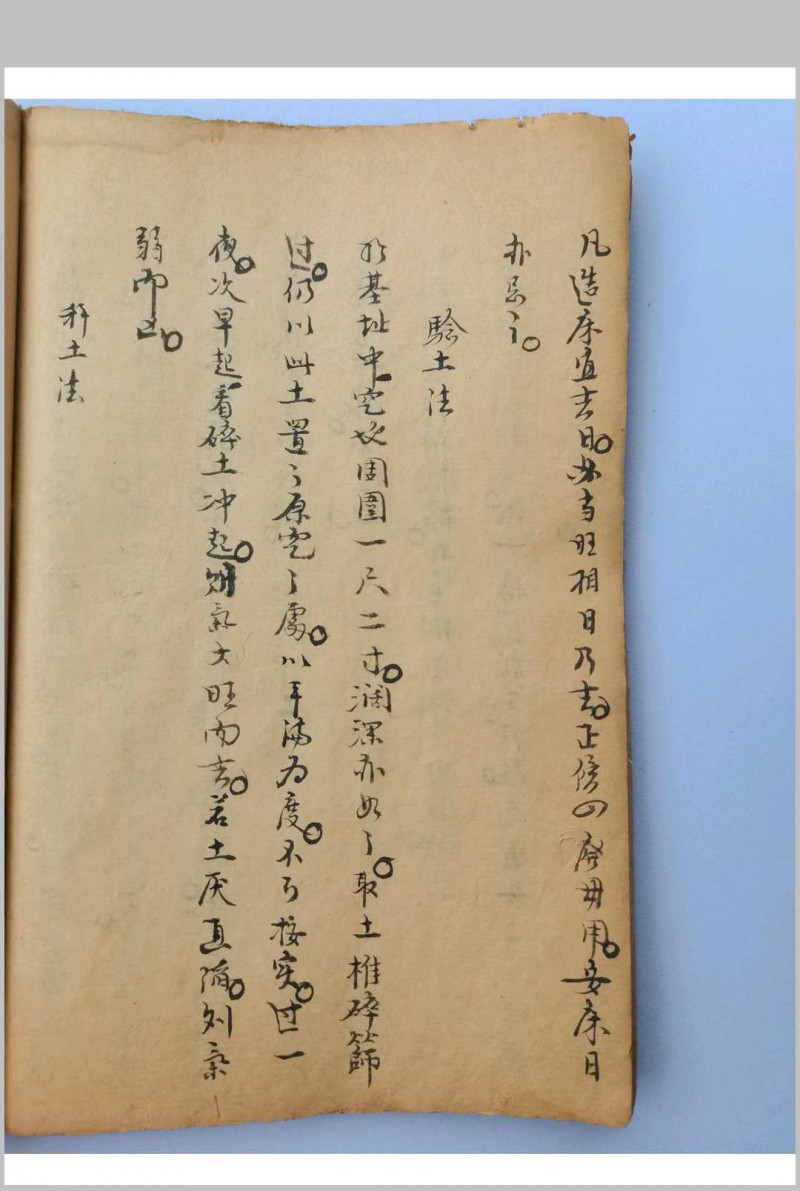 凡造床宜吉日。必当旺相日乃吉。正債四廢毋用。安床日
亦忌之。
驗土法
於基址中空处周圍一尺二寸。濶深亦如之。取土椎碎篩
过。仍以此土置之原空之處。以平满为度。不可按实。过一
夜。次早起看碎土冲起。則氣大旺而吉。若土厌直隔。则氣
弱而凶。
秤土法